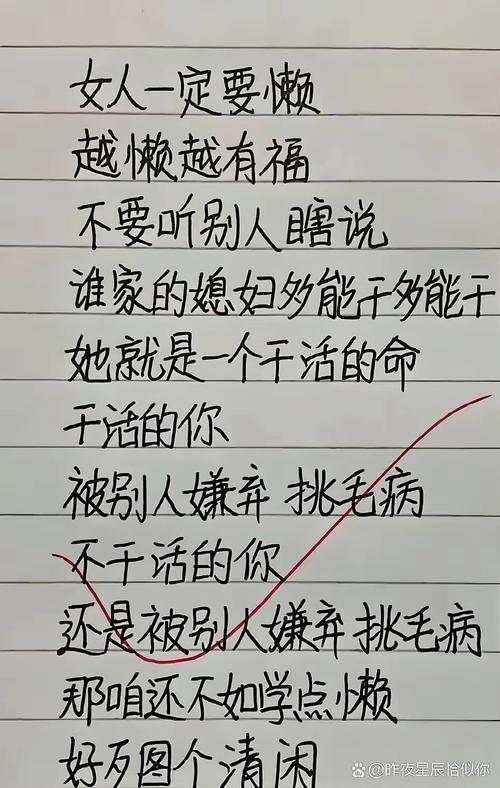 女人一定要懒
越懒越有福
不要听别人瞎说
谁家的媳妇多能干多能干
她就是一个干活的命
干活的你
被别人嫌弃 挑毛病
不干活的你
还是被别人嫌弃 挑毛病
那咱还不如学点懒
好歹图个清闲
@昨夜星辰恰似你